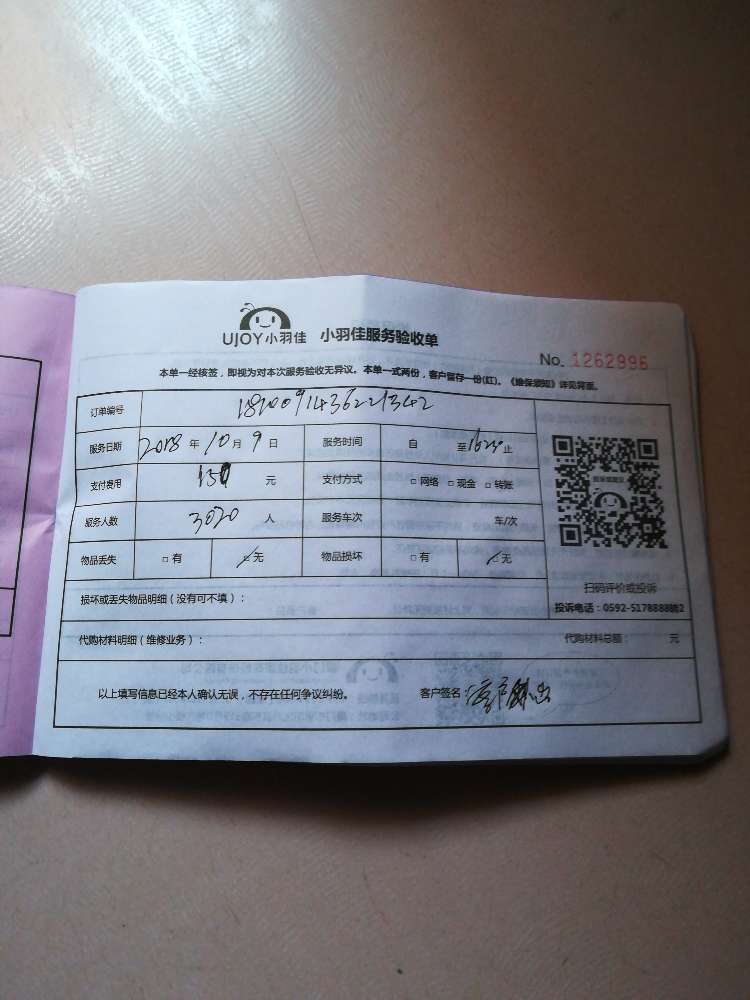 UJOY小羽佳 小羽佳服务验收单
No. 1262996
本单一经核签，即视为对本次服务验收无异议。本单一式两份，客户留存一份(红)。《维保须知》详见背面。
订单编号
服务日期 2018 年 10 月 9 日 服务时间 自 至 止
支付费用 150 元 支付方式 □ 网络 □ 现金 □ 转账
服务人数 3020 人 服务车次 车/次
物品丢失 □ 有 □ 无 物品损坏 □ 有 □ 无
扫码评价或投诉
损坏或丢失物品明细（没有可不填）：
投诉电话：0592-5178888转2
代购材料明细（维修业务）： 代购材料总额： 元
以上填写信息已经本人确认无误，不存在任何争议纠纷。 客户签名：